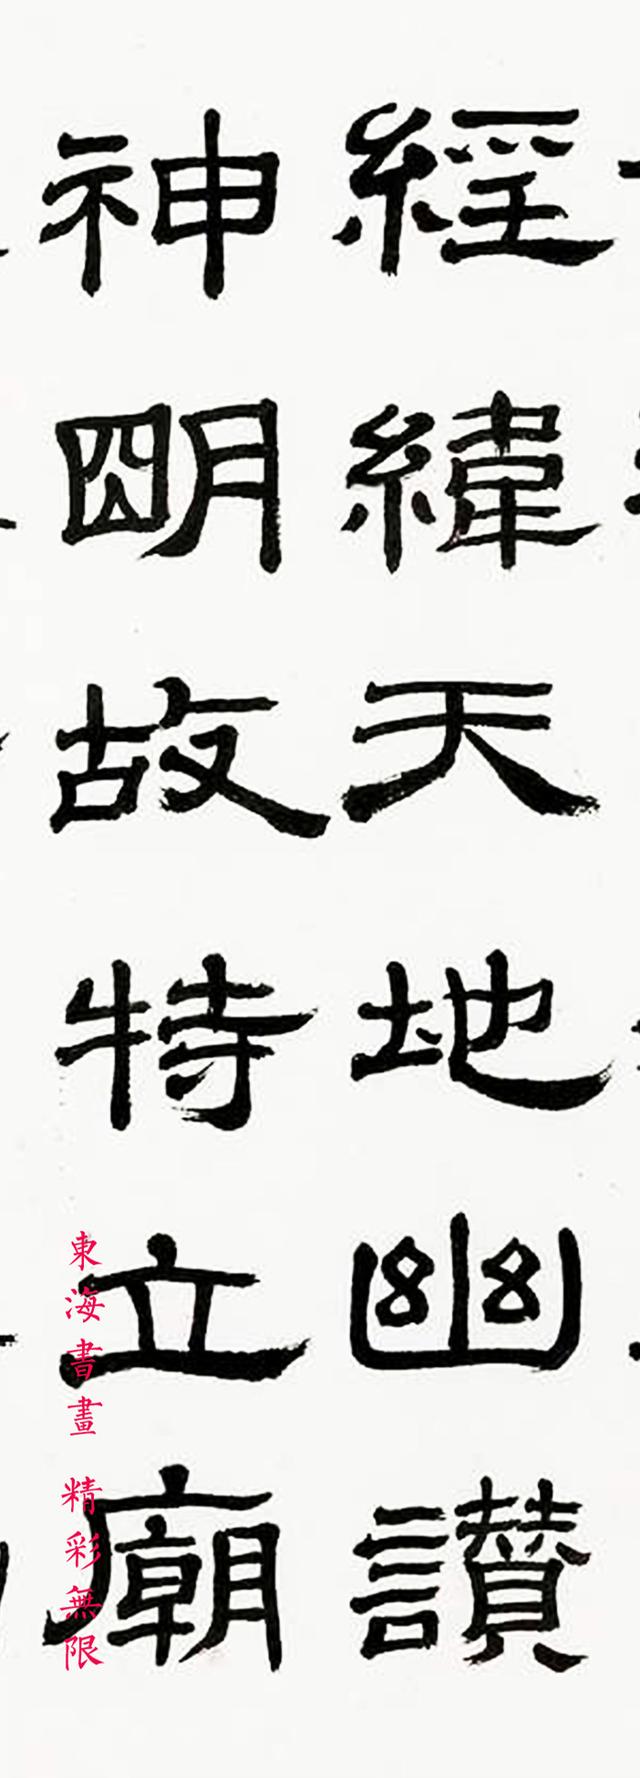 經緯天地幽讃
神明故特立廟
東海書畫 精彩無限